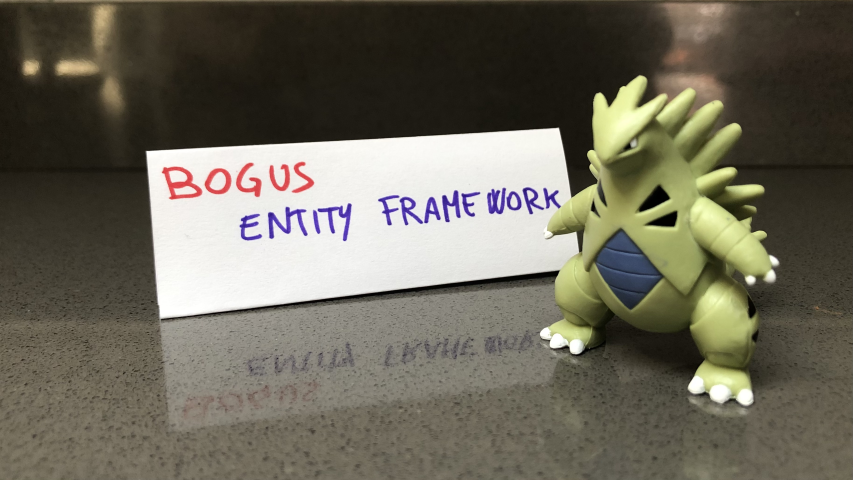 BOGUS
ENTITY FRAMEWORK